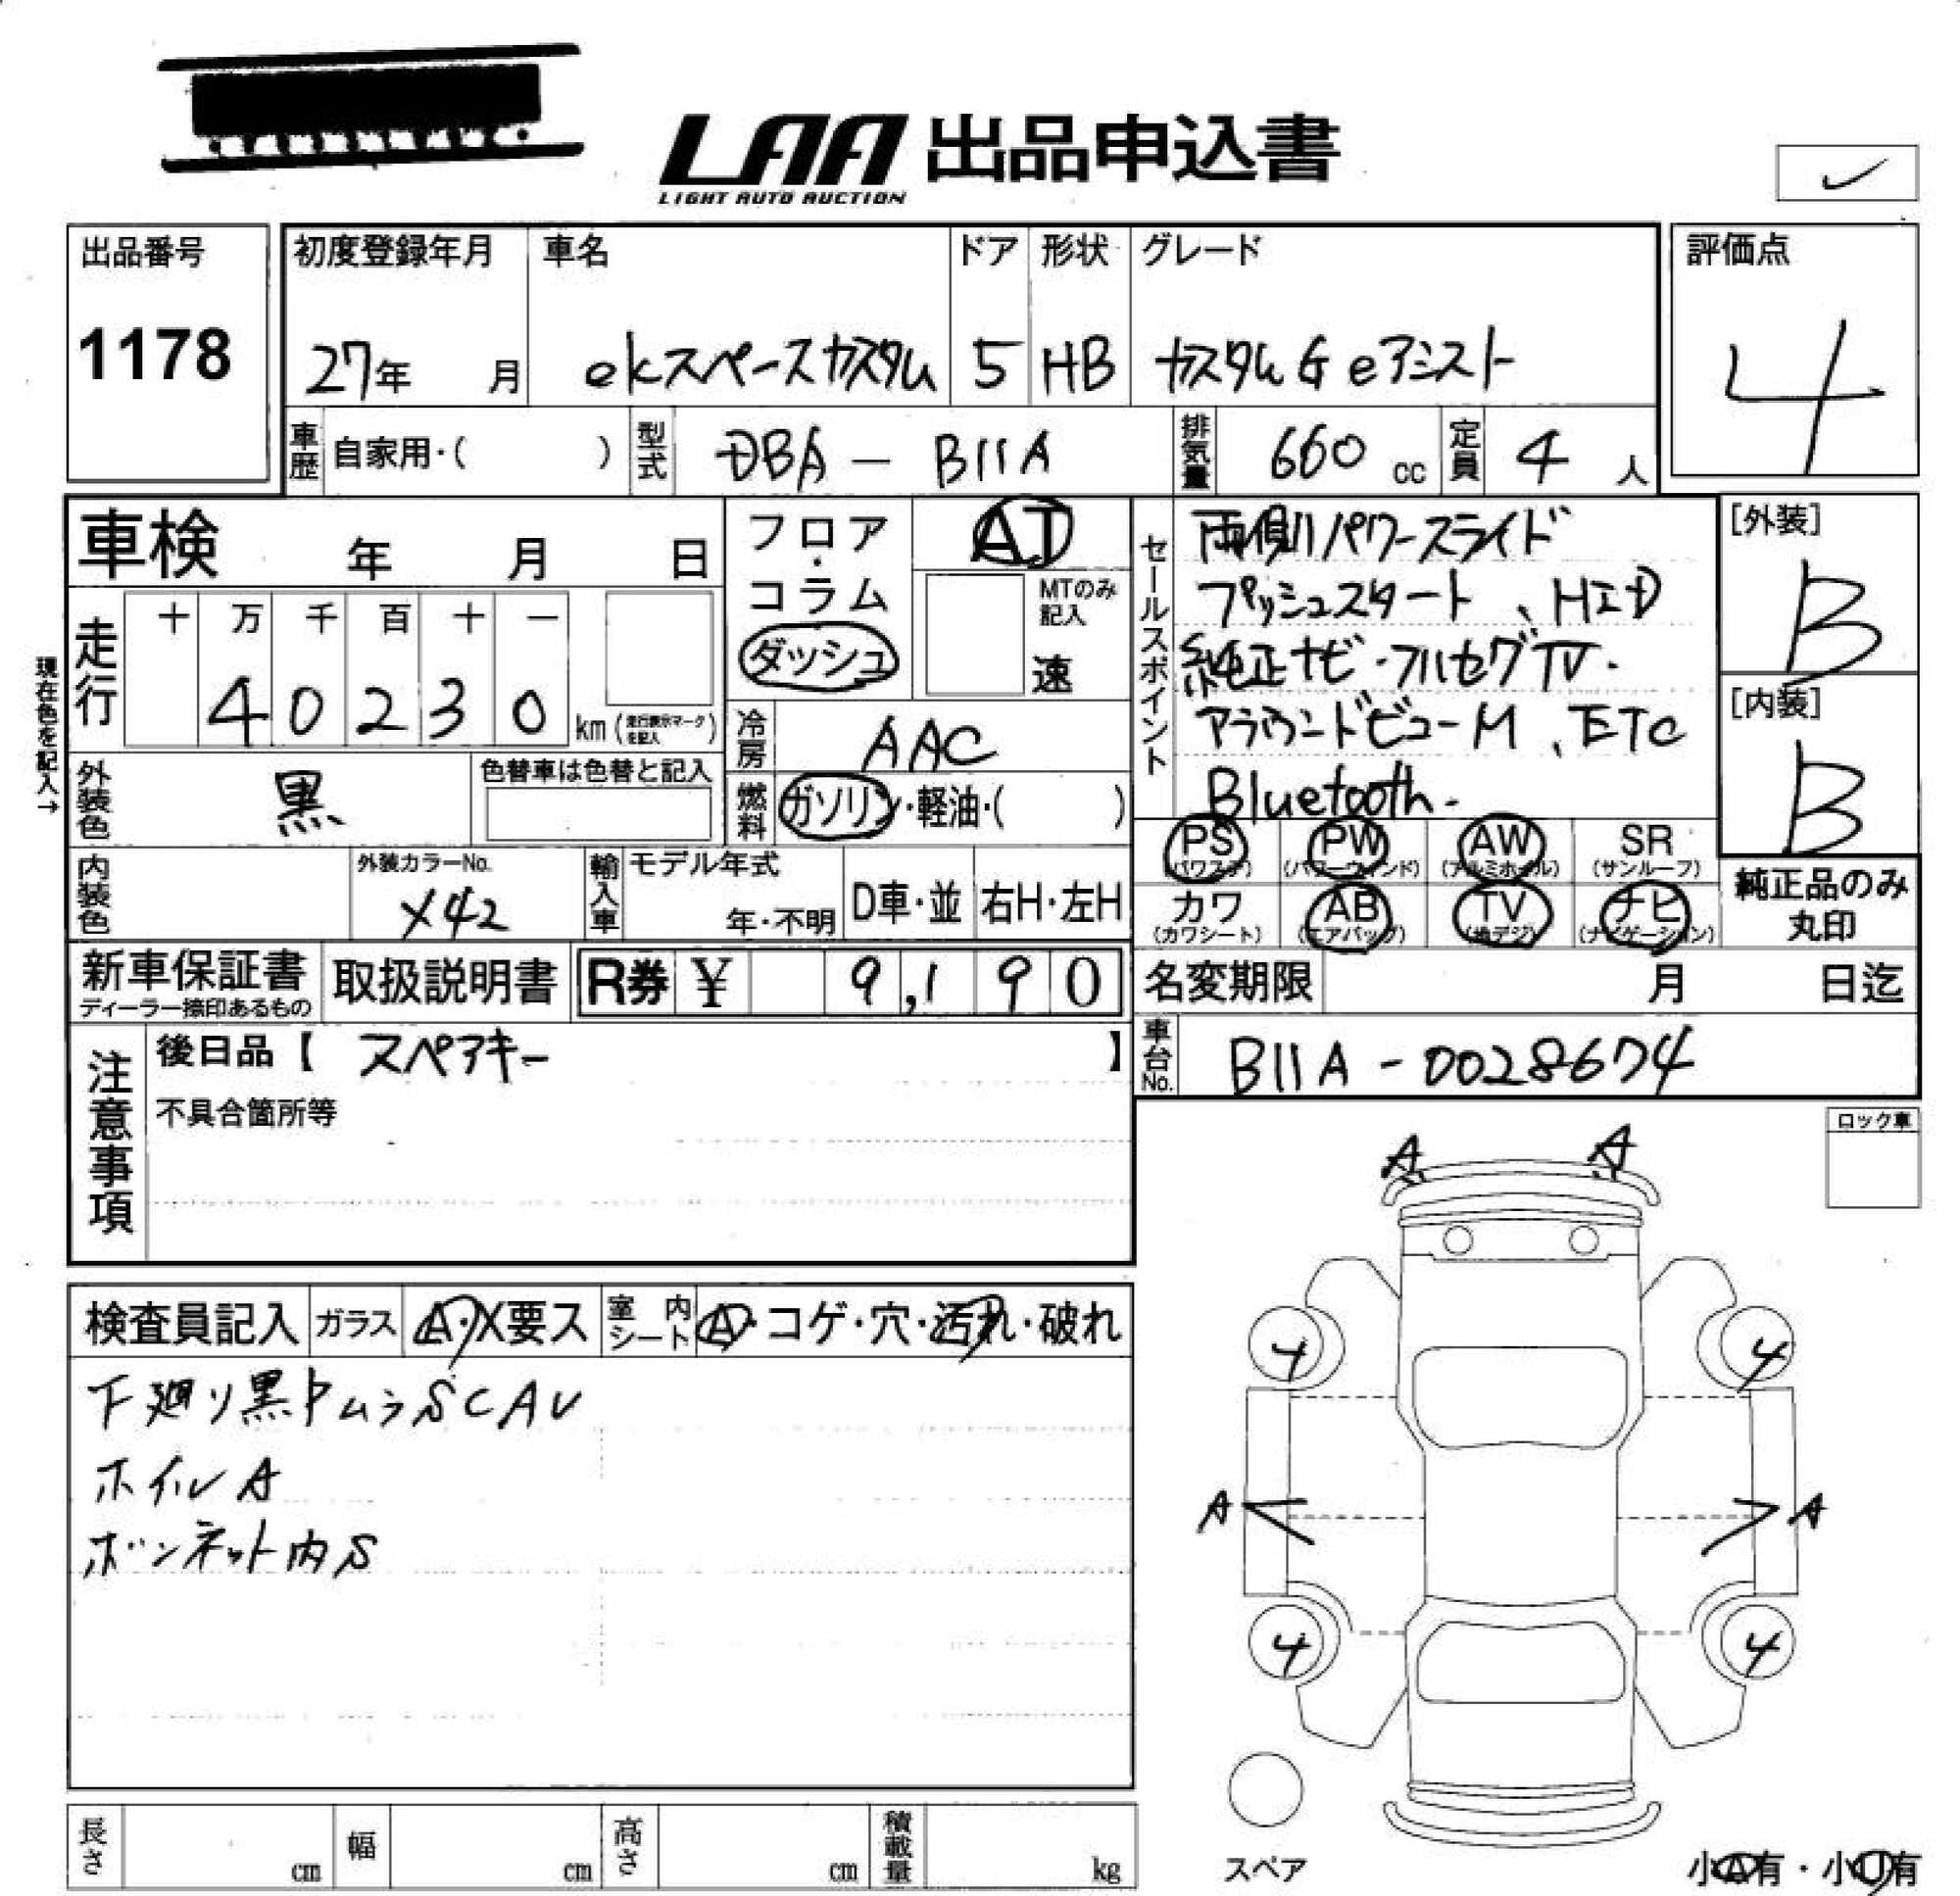 LAA 出品申込書
LIGHT AUTO AUCTION
出品番号
1178
初度登録年月
27年 月
車名
ekスペースカスタム
ドア
5
形状
HB
グレード
カスタムG eアシスト
評価点
4
車歴 自家用・( )
型式 DBA - B11A
排気量 660 cc
定員 4 人
車検 年 月 日
フロア・コラム
ダッシュ
AT
MTのみ記入
速
セールスポイント
両側パワースライド
プッシュスタート、HID
純正ナビ・フルセグTV・
アラウンドビューM、ETC
Bluetooth・
[外装]
B
[内装]
B
現在色を記入→
走行 十 万 千 百 十 一
4 0 2 3 0 km (走行表示マークを記入)
冷房 AAC
外装色 黒
色替車は色替と記入
燃料 ガソリン・軽油・( )
PS (パワステ) PW (パワーウィンド) AW (アルミホイル) SR (サンルーフ)
カワ (カワシート) AB (エアバッグ) TV (地デジ) ナビ (ナビゲーション)
純正品のみ丸印
内装色
外装カラーNo.
X42
輸入車 モデル年式
年・不明
D車・並
右H・左H
新車保証書
ディーラー捺印あるもの
取扱説明書
R券 ¥ 9,190
名変期限 月 日迄
注意事項
後日品【 スペアキー 】
不具合箇所等
車台No. B11A - 0028674
ロック車
A A
4 4
A A
4 4
スペア
小A有・小U有
検査員記入 ガラス A・X要ス 室内シート A・コゲ・穴・汚れ・破れ
下廻り黒トムラSCAU
ホイルA
ボンネット内S
長さ cm 幅 cm 高さ cm 積載量 kg